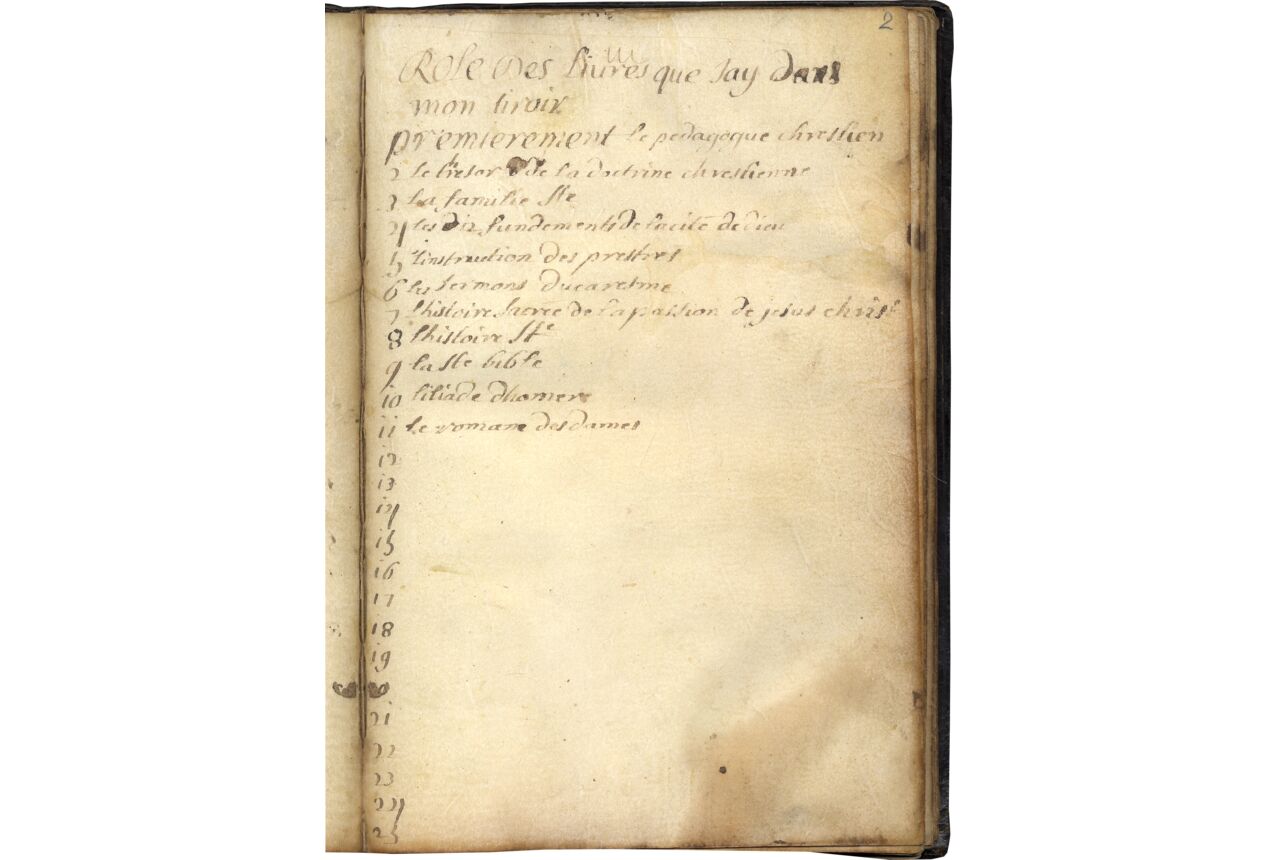 2
Role Des liures que Jay Dans
mon tiroir
premierement le pedagoque chrestien
2 le thresor de la doctrine chrestienne
3 la famille Ste
4 les dix fundements de la cité de dieu
5 l'instruction des prestres
6 les sermons du caresme
7 l'histoire sacrée de la passion de jesus christ
8 lhistoire Ste
9 la Ste bible
10 liliade dhomere
11 le romane des dames
12
13
14
15
16
17
18
19
21
22
23
24
25